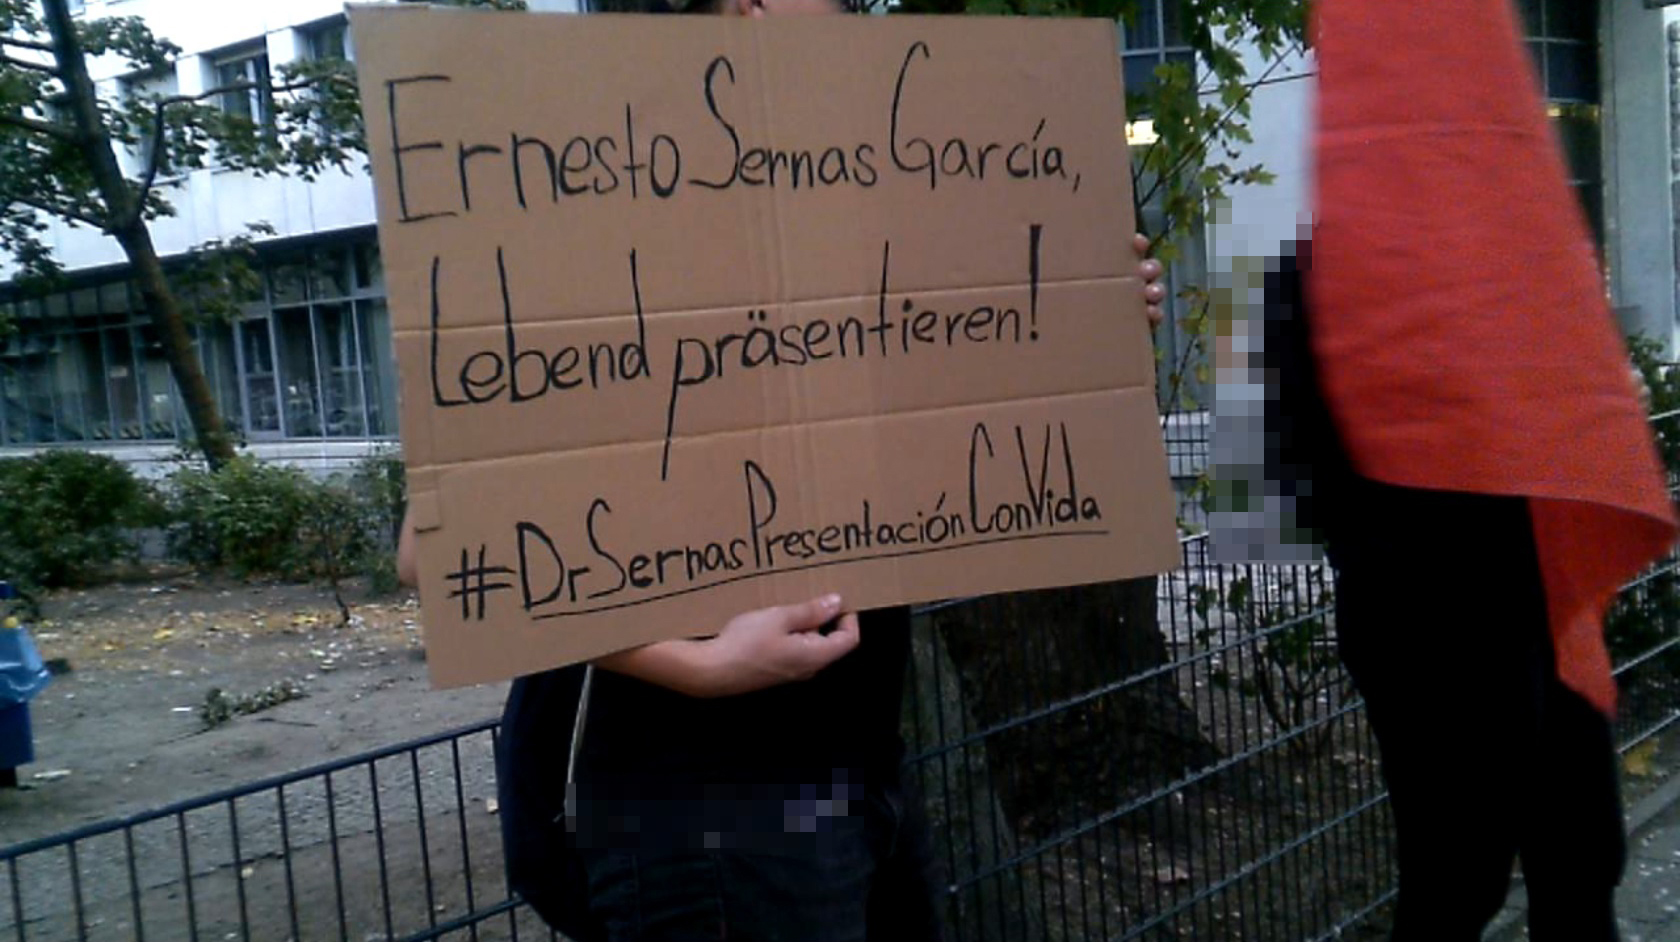 Ernesto Sernas García,
Lebend präsentieren!
#DrSernasPresentaciónConVida